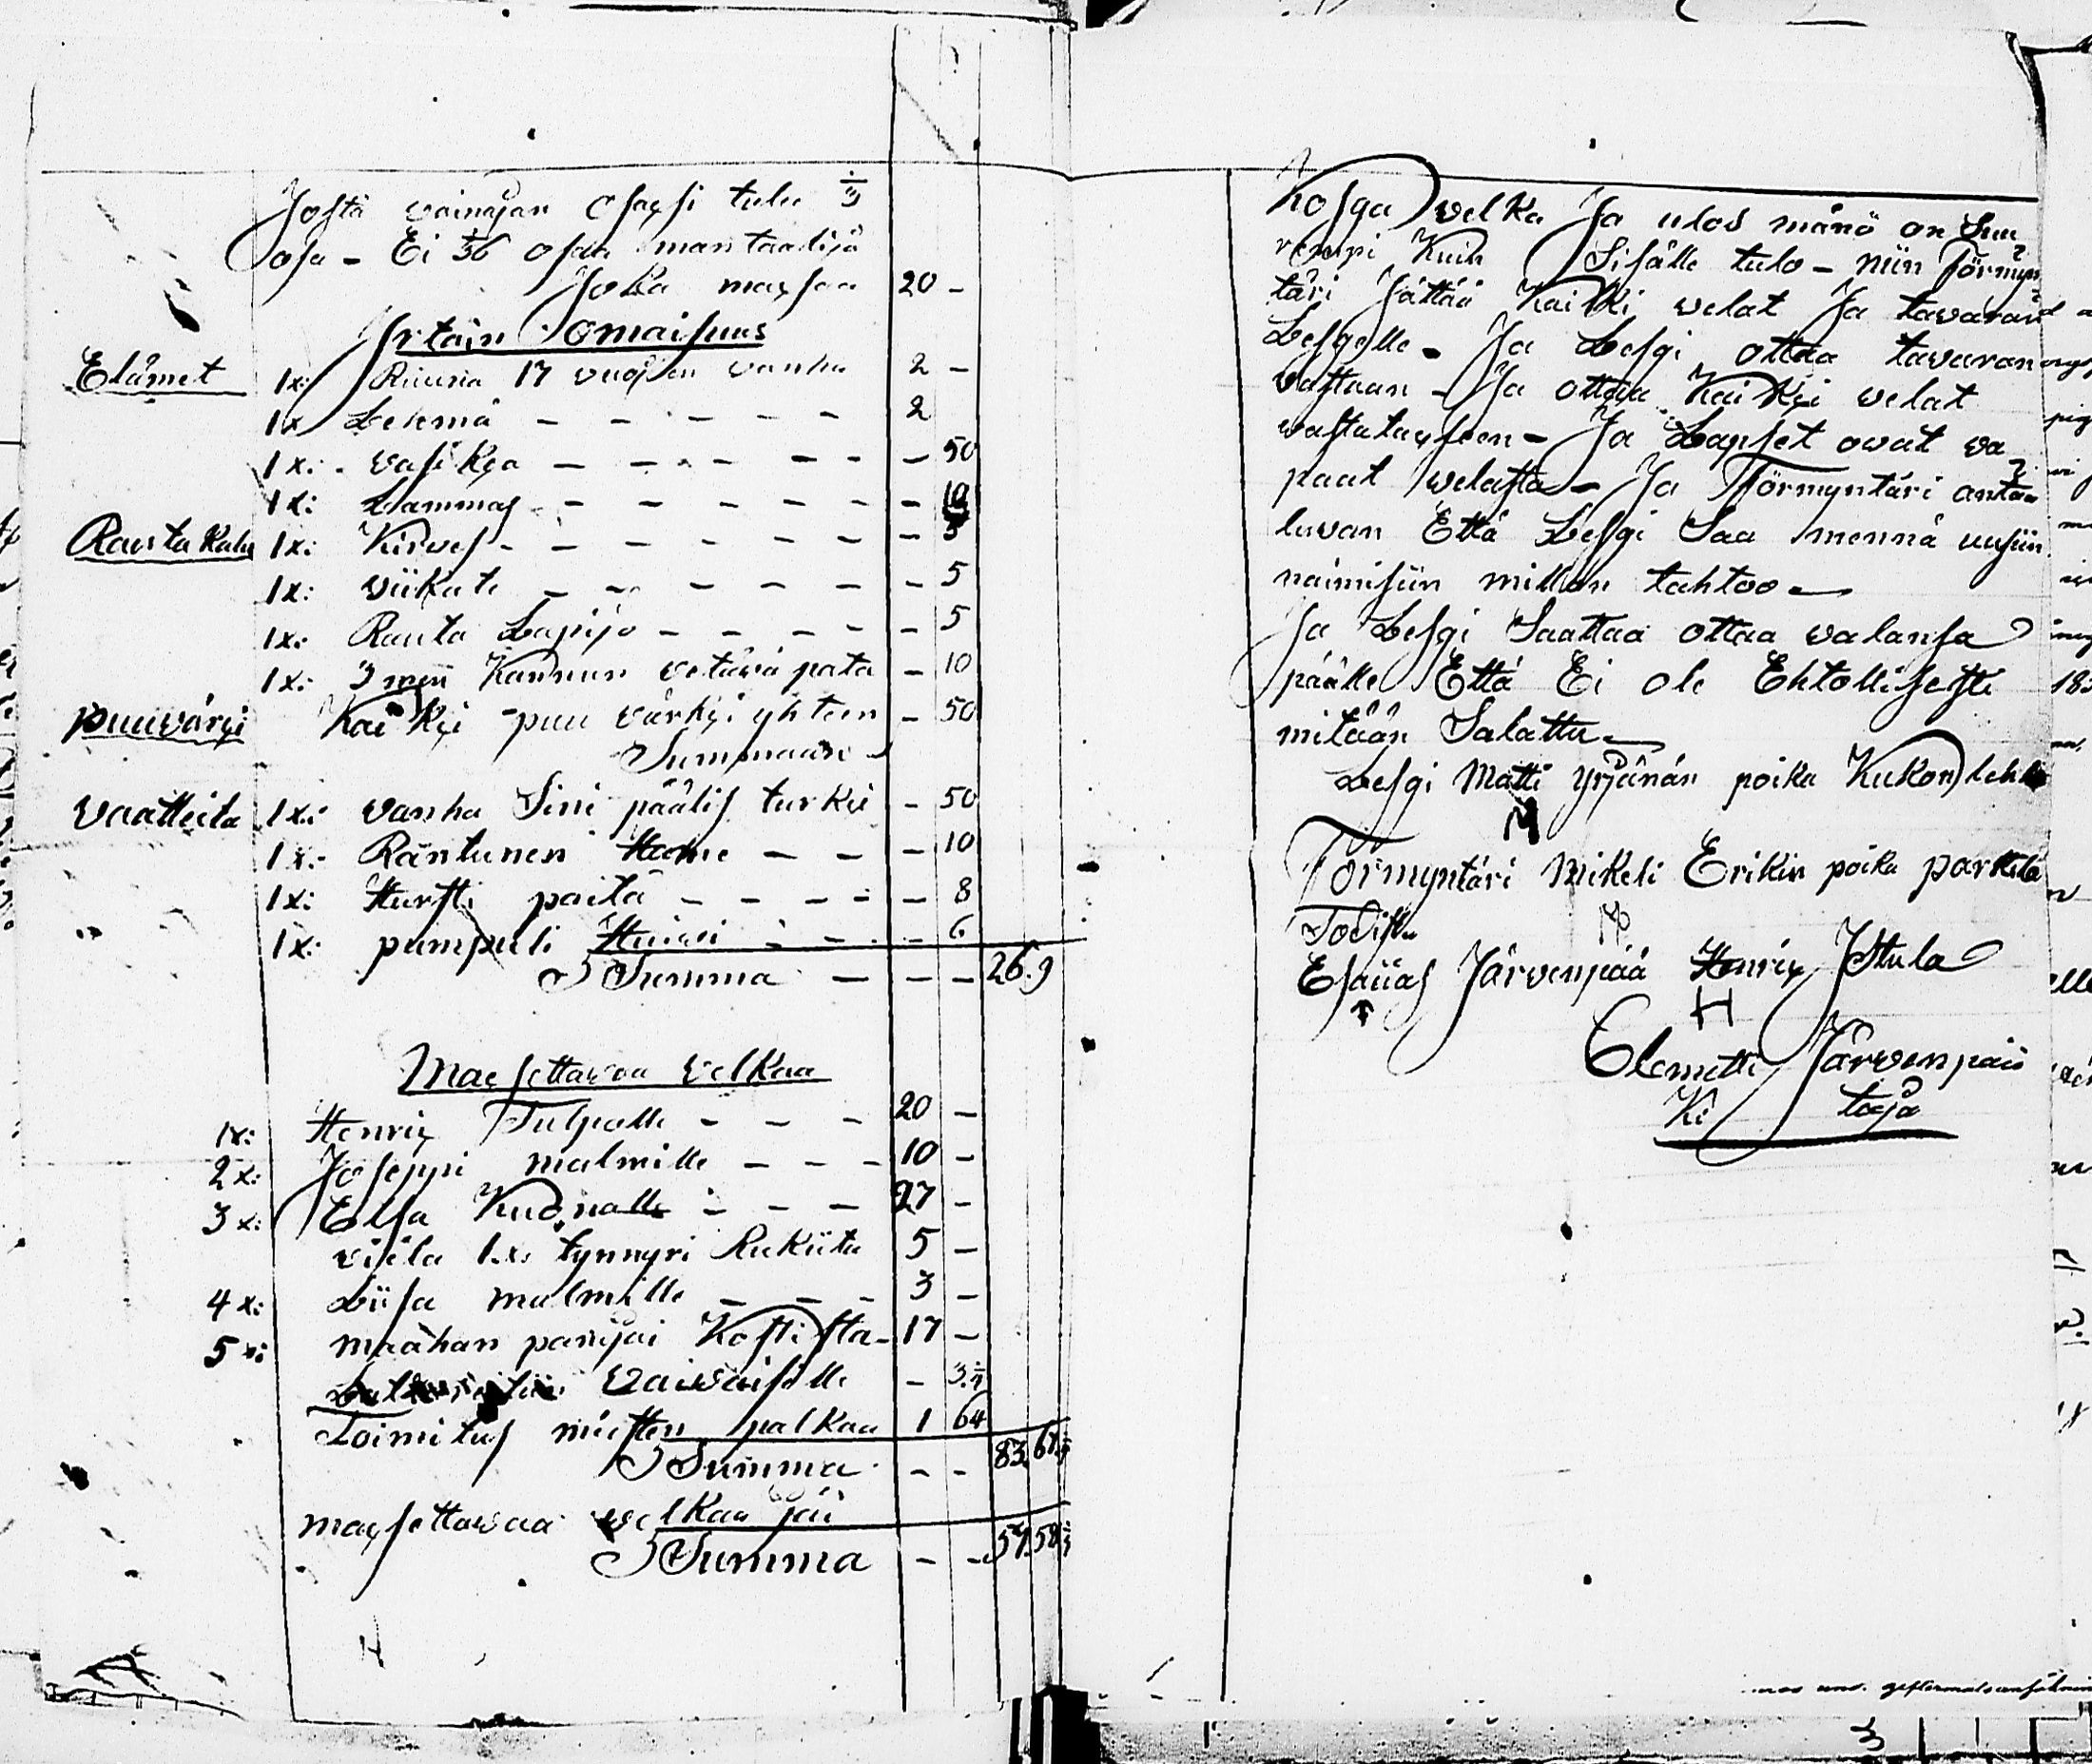 Josta vainajan osaxsi tulee 1/3
osa - Ei 1/36 osaa mantaalija
Joka maxsaa 20 -
Irtain Omaisuus
Elämet 1x: Ruuna 17 vuojen vanha 2 -
1x Lehmä - - - - - - 2
1x: vasikxa - - - - - - 50
1x: Lammas - - - - - - 10
Rauta Kalu 1x: Kirves - - - - - - 3
1x: viikate - - - - - - 5
1x: Rauta Lapijo - - - - - 5
1x: 3 men Kannun vetävä pata - 10
puuvärxi Kaikxi puu värkxi yhteen - 50
Summaan
vaatteita 1x: vanha Sini päälis turkxi - 50
1x: Räntunen Hame - - - 10
1x: Hursti paita - - - - - 8
1x: pumpuli Huivi - - - 6
Summa - - - 26.9
Maxsettavaa velkaa
1x: Henrix Tulpalle - - - 20 -
2x: Joseppi malmille - - - 10 -
3x: Elsa Kuonalle - - - 27 -
vielä 1x: tynnyri Rukiita 5 -
4x: Liisa malmille - - - 3 -
5x: maahan panijai Kostista - 17 -
vaivaisille - 3.
Toimitus miesten palkaa 1 64
Summa - - 83.67
maxsettavaa velkaa jää
Summa - - 57.58
Kosga velka Ja ulos mänö on Suu
rempi Kuin Sisälle tulo - niin Förmyn
täri Jättää Kaikki velat Ja tavarat
Lesgelle - Ja Lesgi ottaa tavaran
vastaan - Ja ottaa Kaikxi velat
vastataxseen - Ja Lapset ovat va
paat velasta - Ja Förmyntäri antaa
luvan Että Lesgi Saa mennä uusiin
naimisiin millon tahtoo -
Ja Lesgi Saattaa ottaa valansa
päälle Että Ei ole Ehtollisesti
mitään Salattu -
Lesgi Matti yrjänän poika Kukonlehto
Förmyntäri Mikeli Erikin poika parkila
Todistu
Esaijas Järvenpää Henrix Stula
H
Clemetti Järvenpää
Ki taja